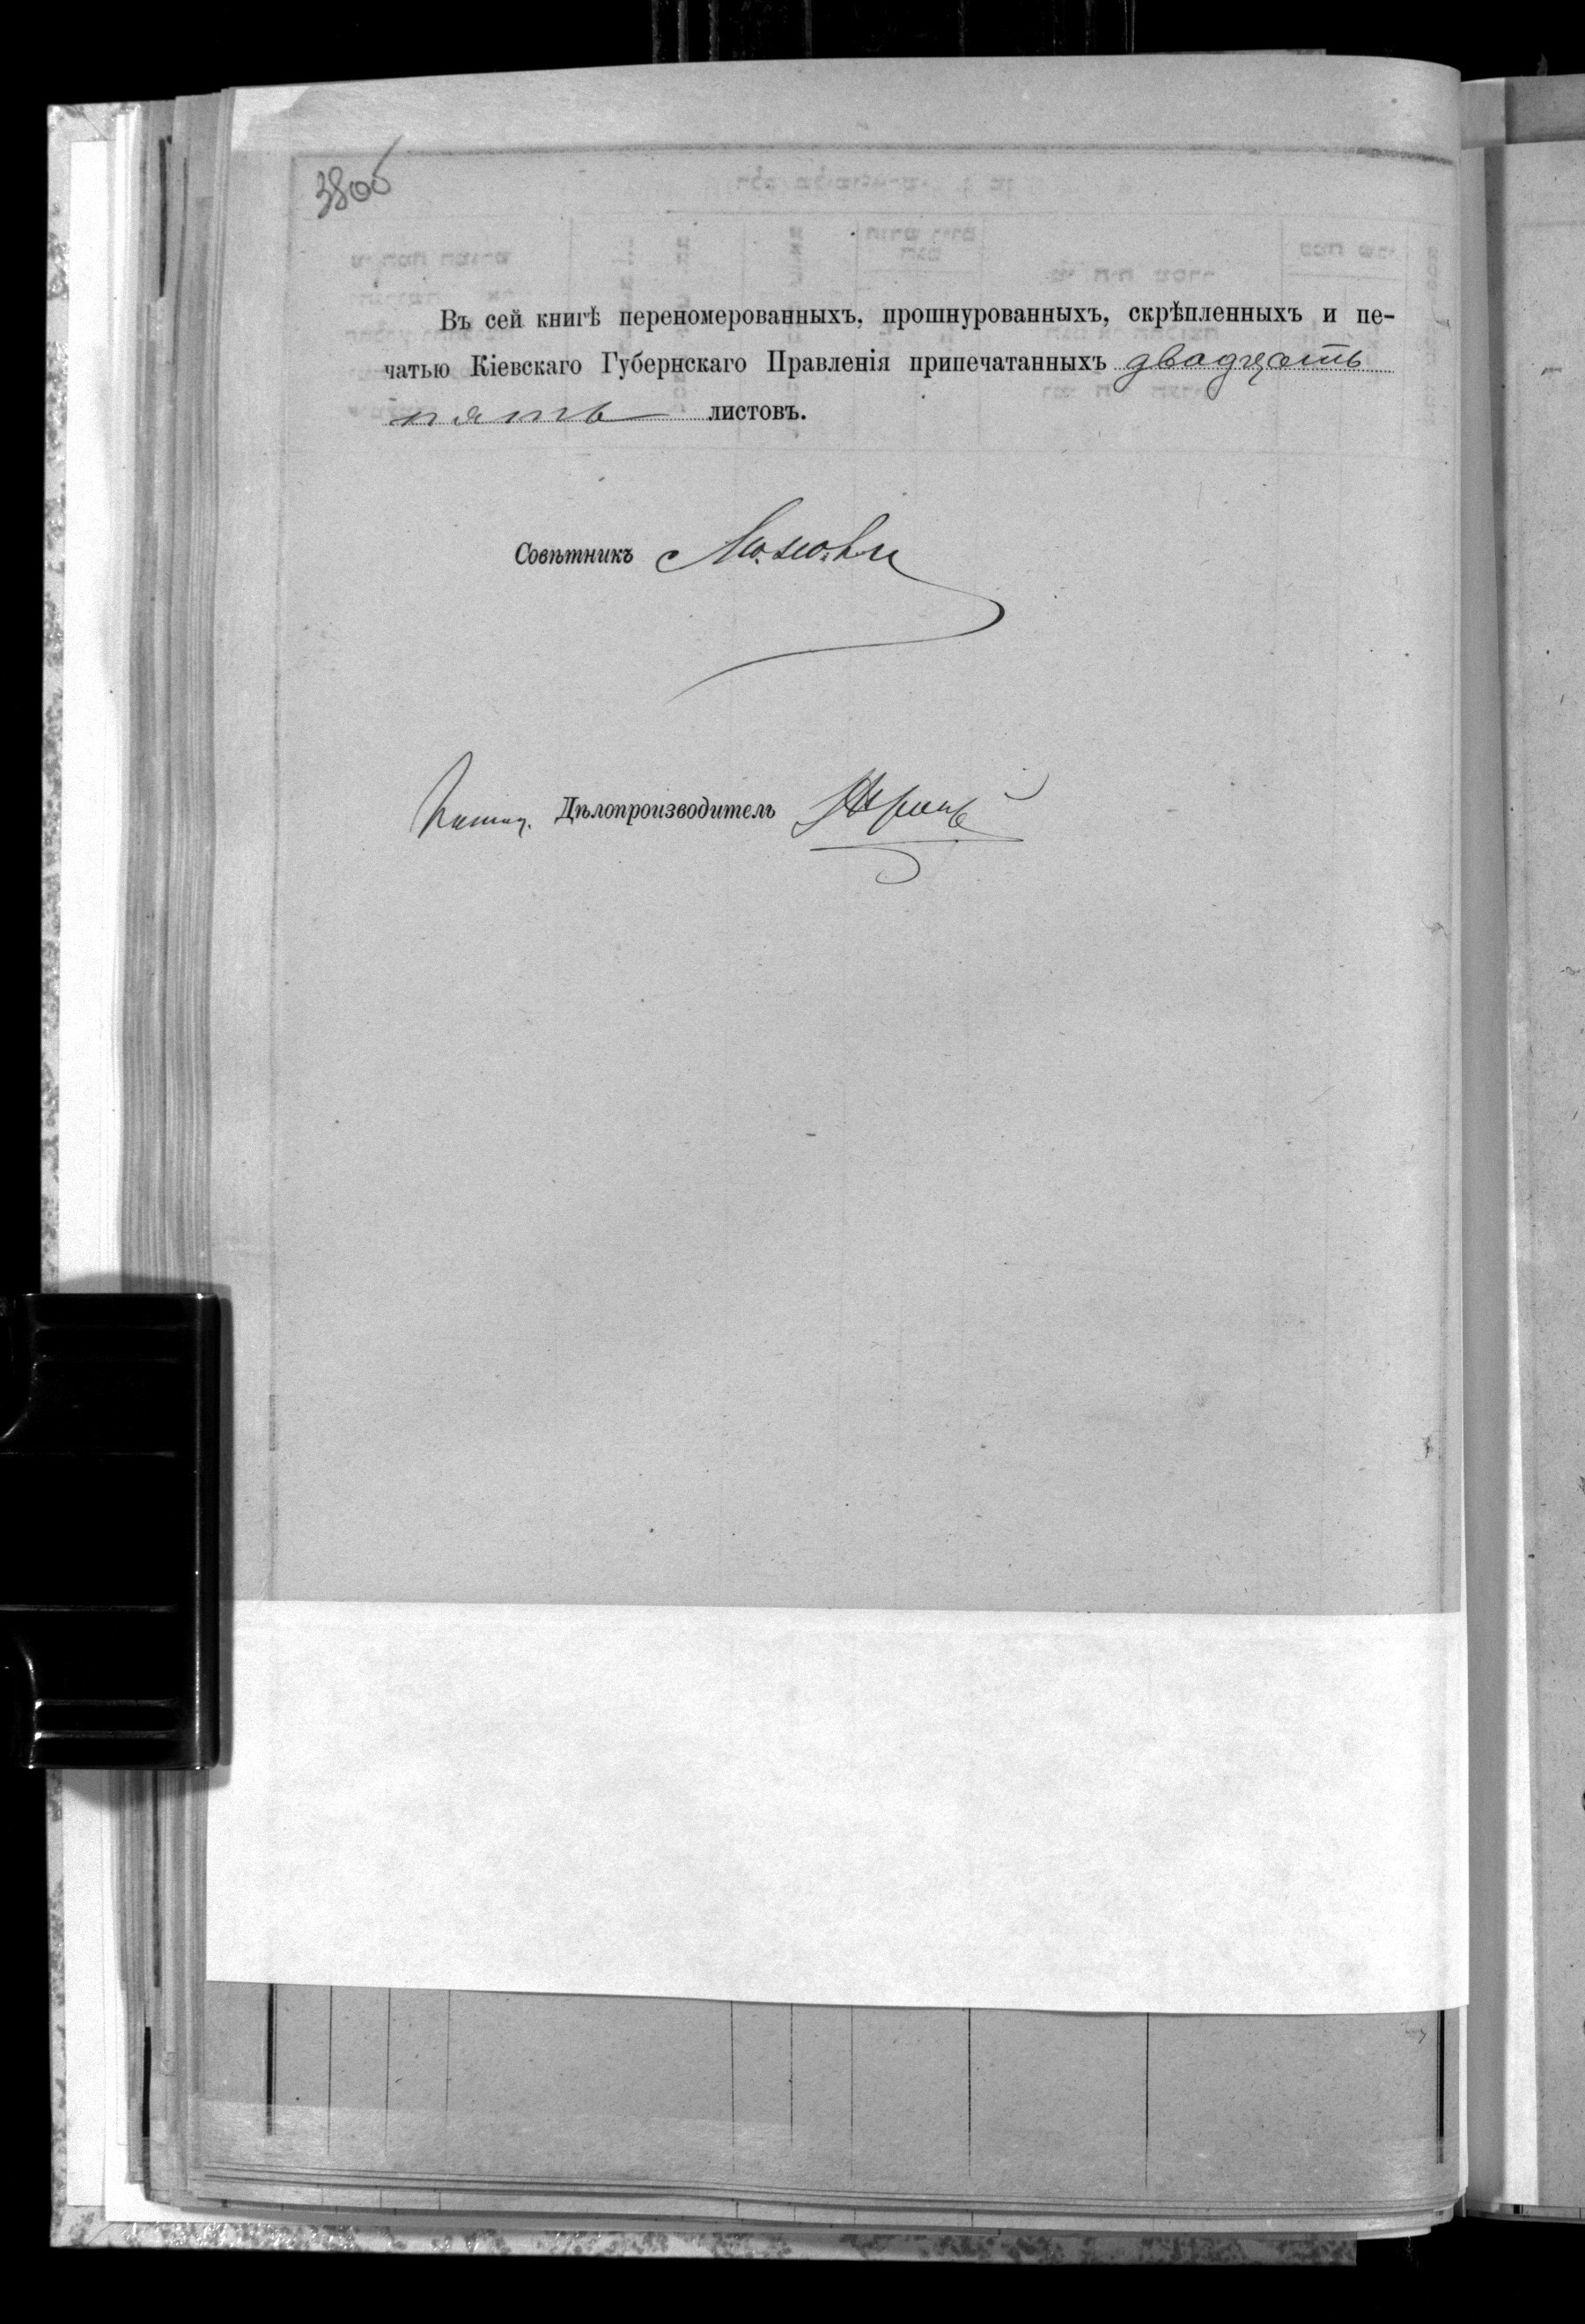 38об
Въ сей книгѣ переномерованныхъ, прошнурованныхъ, скрѣпленныхъ и пе-
чатью Кіевскаго Губернскаго Правленія припечатанныхъ двадцать
пять листовъ.
Совѣтникъ
Дѣлопроизводитель